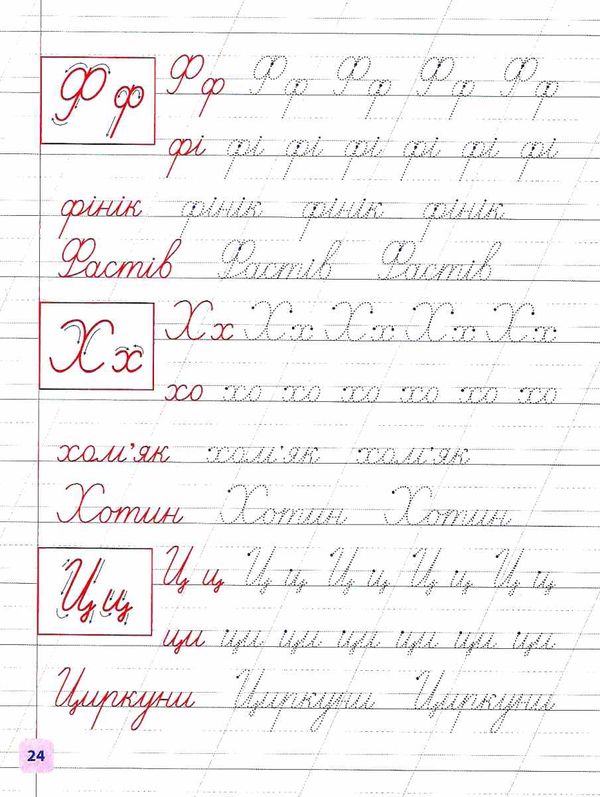 Ф ф Ф ф Ф ф Ф ф Ф ф Ф ф
фі фі фі фі фі фі фі
фінік фінік фінік фінік
Фастів Фастів Фастів
Х х Х х Х х Х х Х х Х х
хо хо хо хо хо хо хо
хом'як хом'як хом'як
Хотин Хотин Хотин
Ц ц Ц ц Ц ц Ц ц Ц ц Ц ц
ци ци ци ци ци ци ци
Циркуни Циркуни Циркуни
24